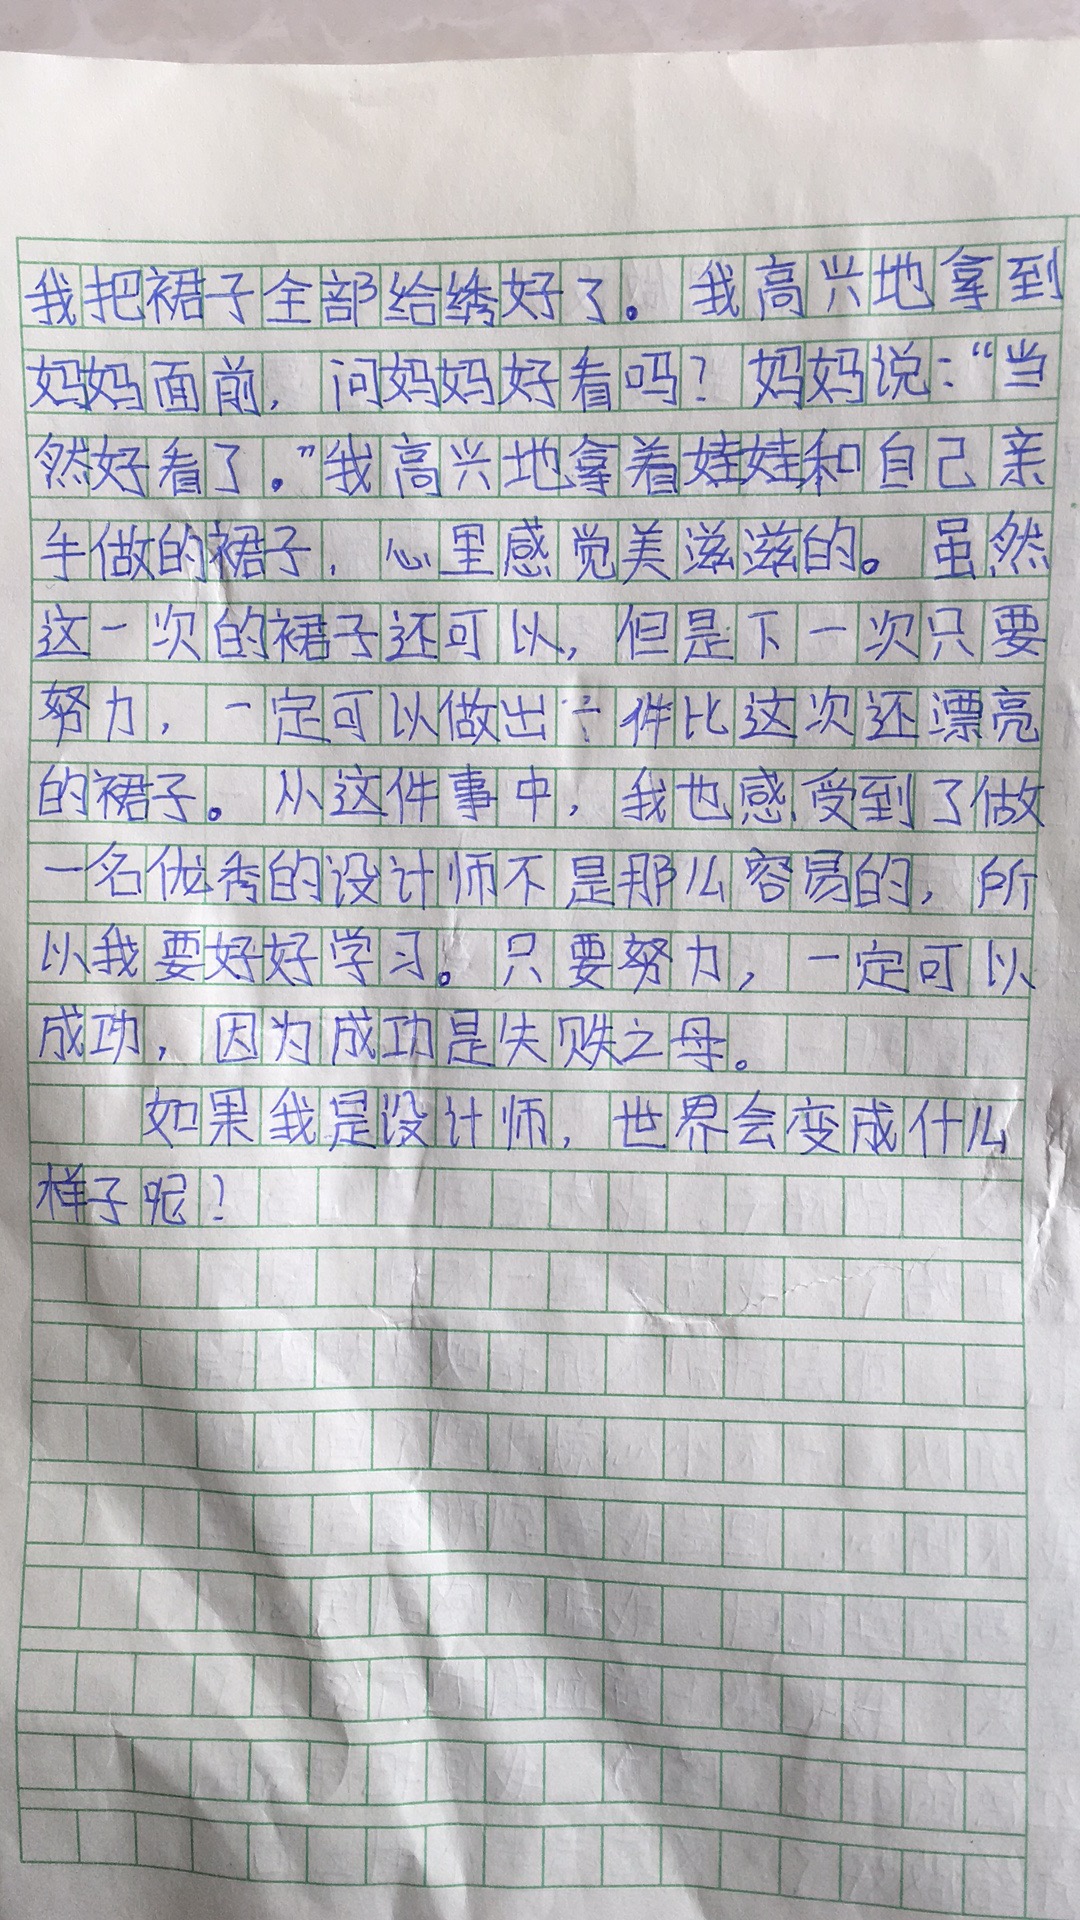 我把裙子全部给绣好了。我高兴地拿到
妈妈面前，问妈妈好看吗？妈妈说：“当
然好看了。”我高兴地拿着娃娃和自己亲
手做的裙子，心里感觉美滋滋的。虽然
这一次的裙子还可以，但是下一次只要
努力，一定可以做出一件比这次还漂亮
的裙子。从这件事中，我也感受到了做
一名优秀的设计师不是那么容易的，所
以我要好好学习。只要努力，一定可以
成功，因为成功是失败之母。
如果我是设计师，世界会变成什么
样子呢？